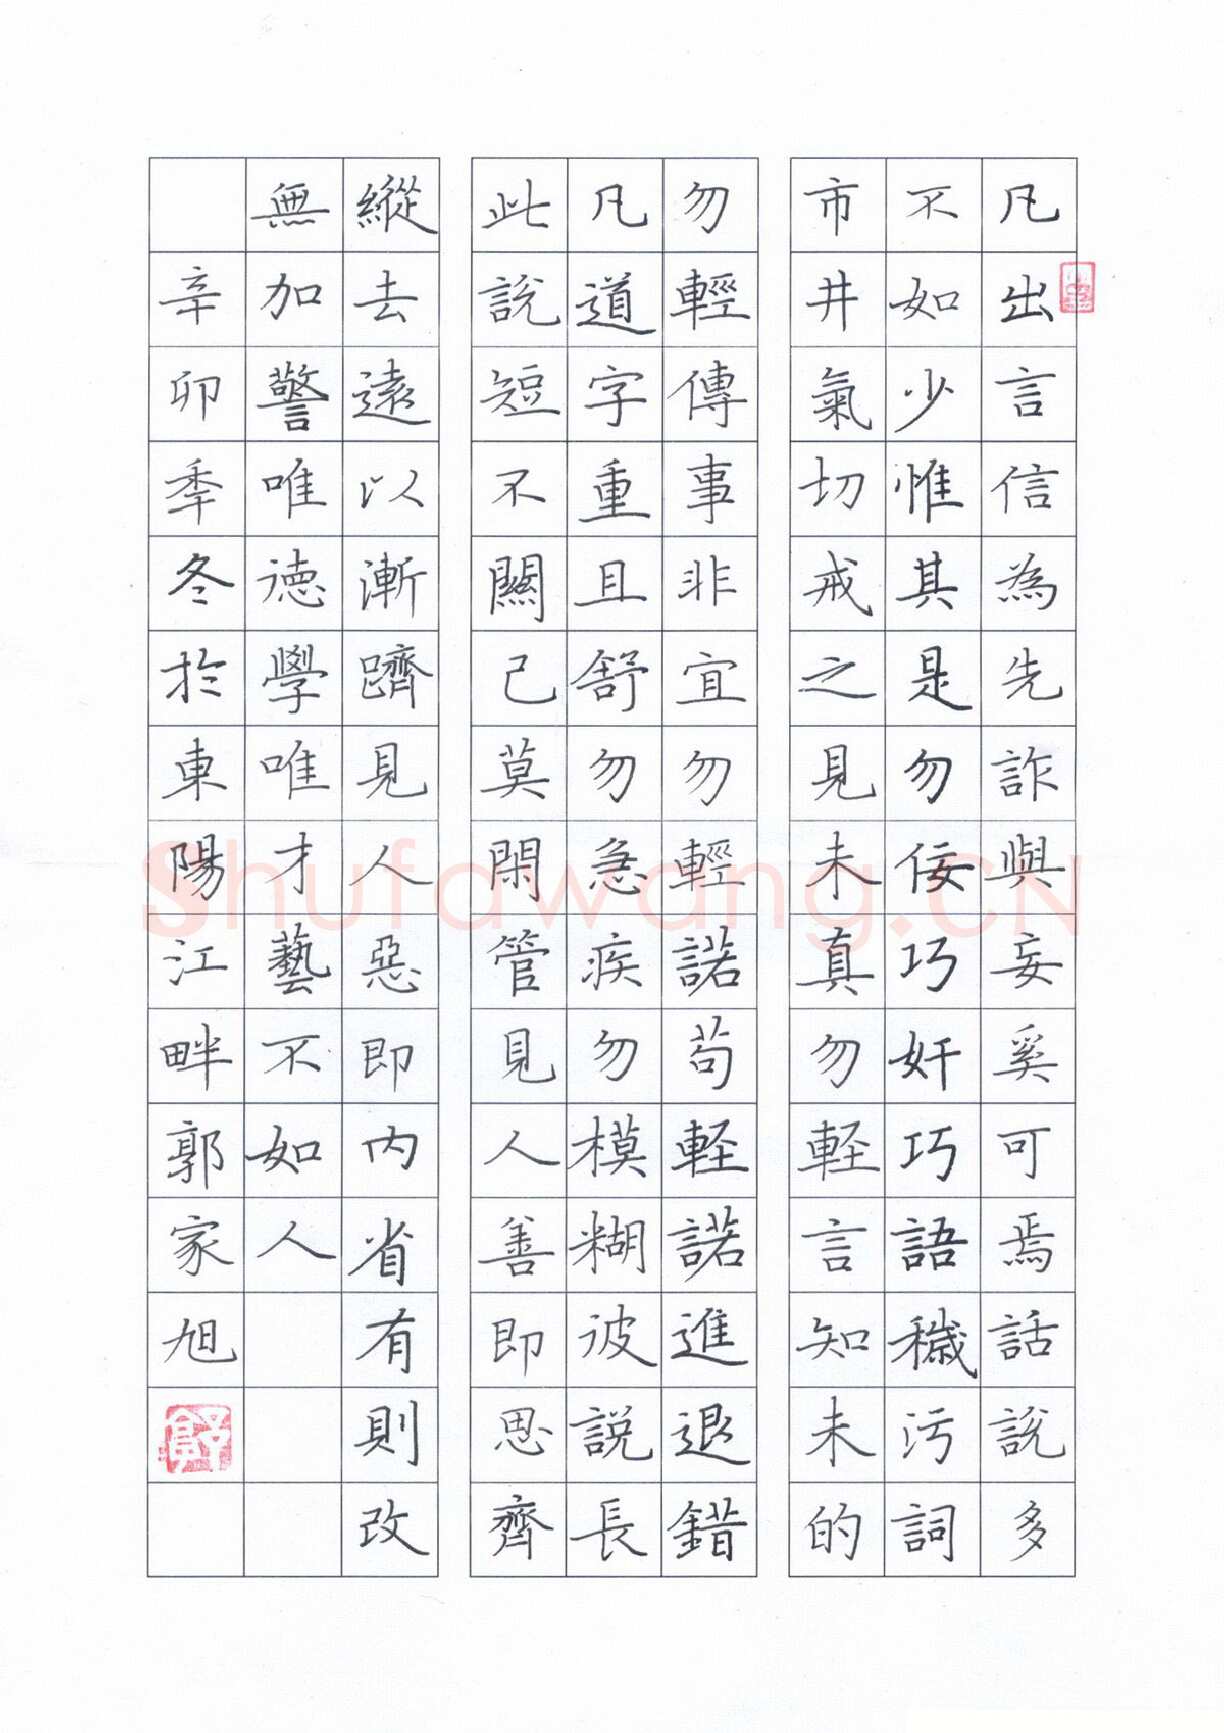 凡出言信為先詐與妄奚可焉話說多
不如少惟其是勿佞巧奸巧語穢污詞
市井氣切戒之見未真勿軽言知未的
勿輕傳事非宜勿輕諾苟軽諾進退錯
凡道字重且舒勿急疾勿模糊彼説長
此說短不關己莫閑管見人善即思齊
縱去遠以漸躋見人惡即内省有則改
無加警唯德學唯才藝不如人
辛卯秊冬於東陽江畔郭家旭
Shufawang.CN